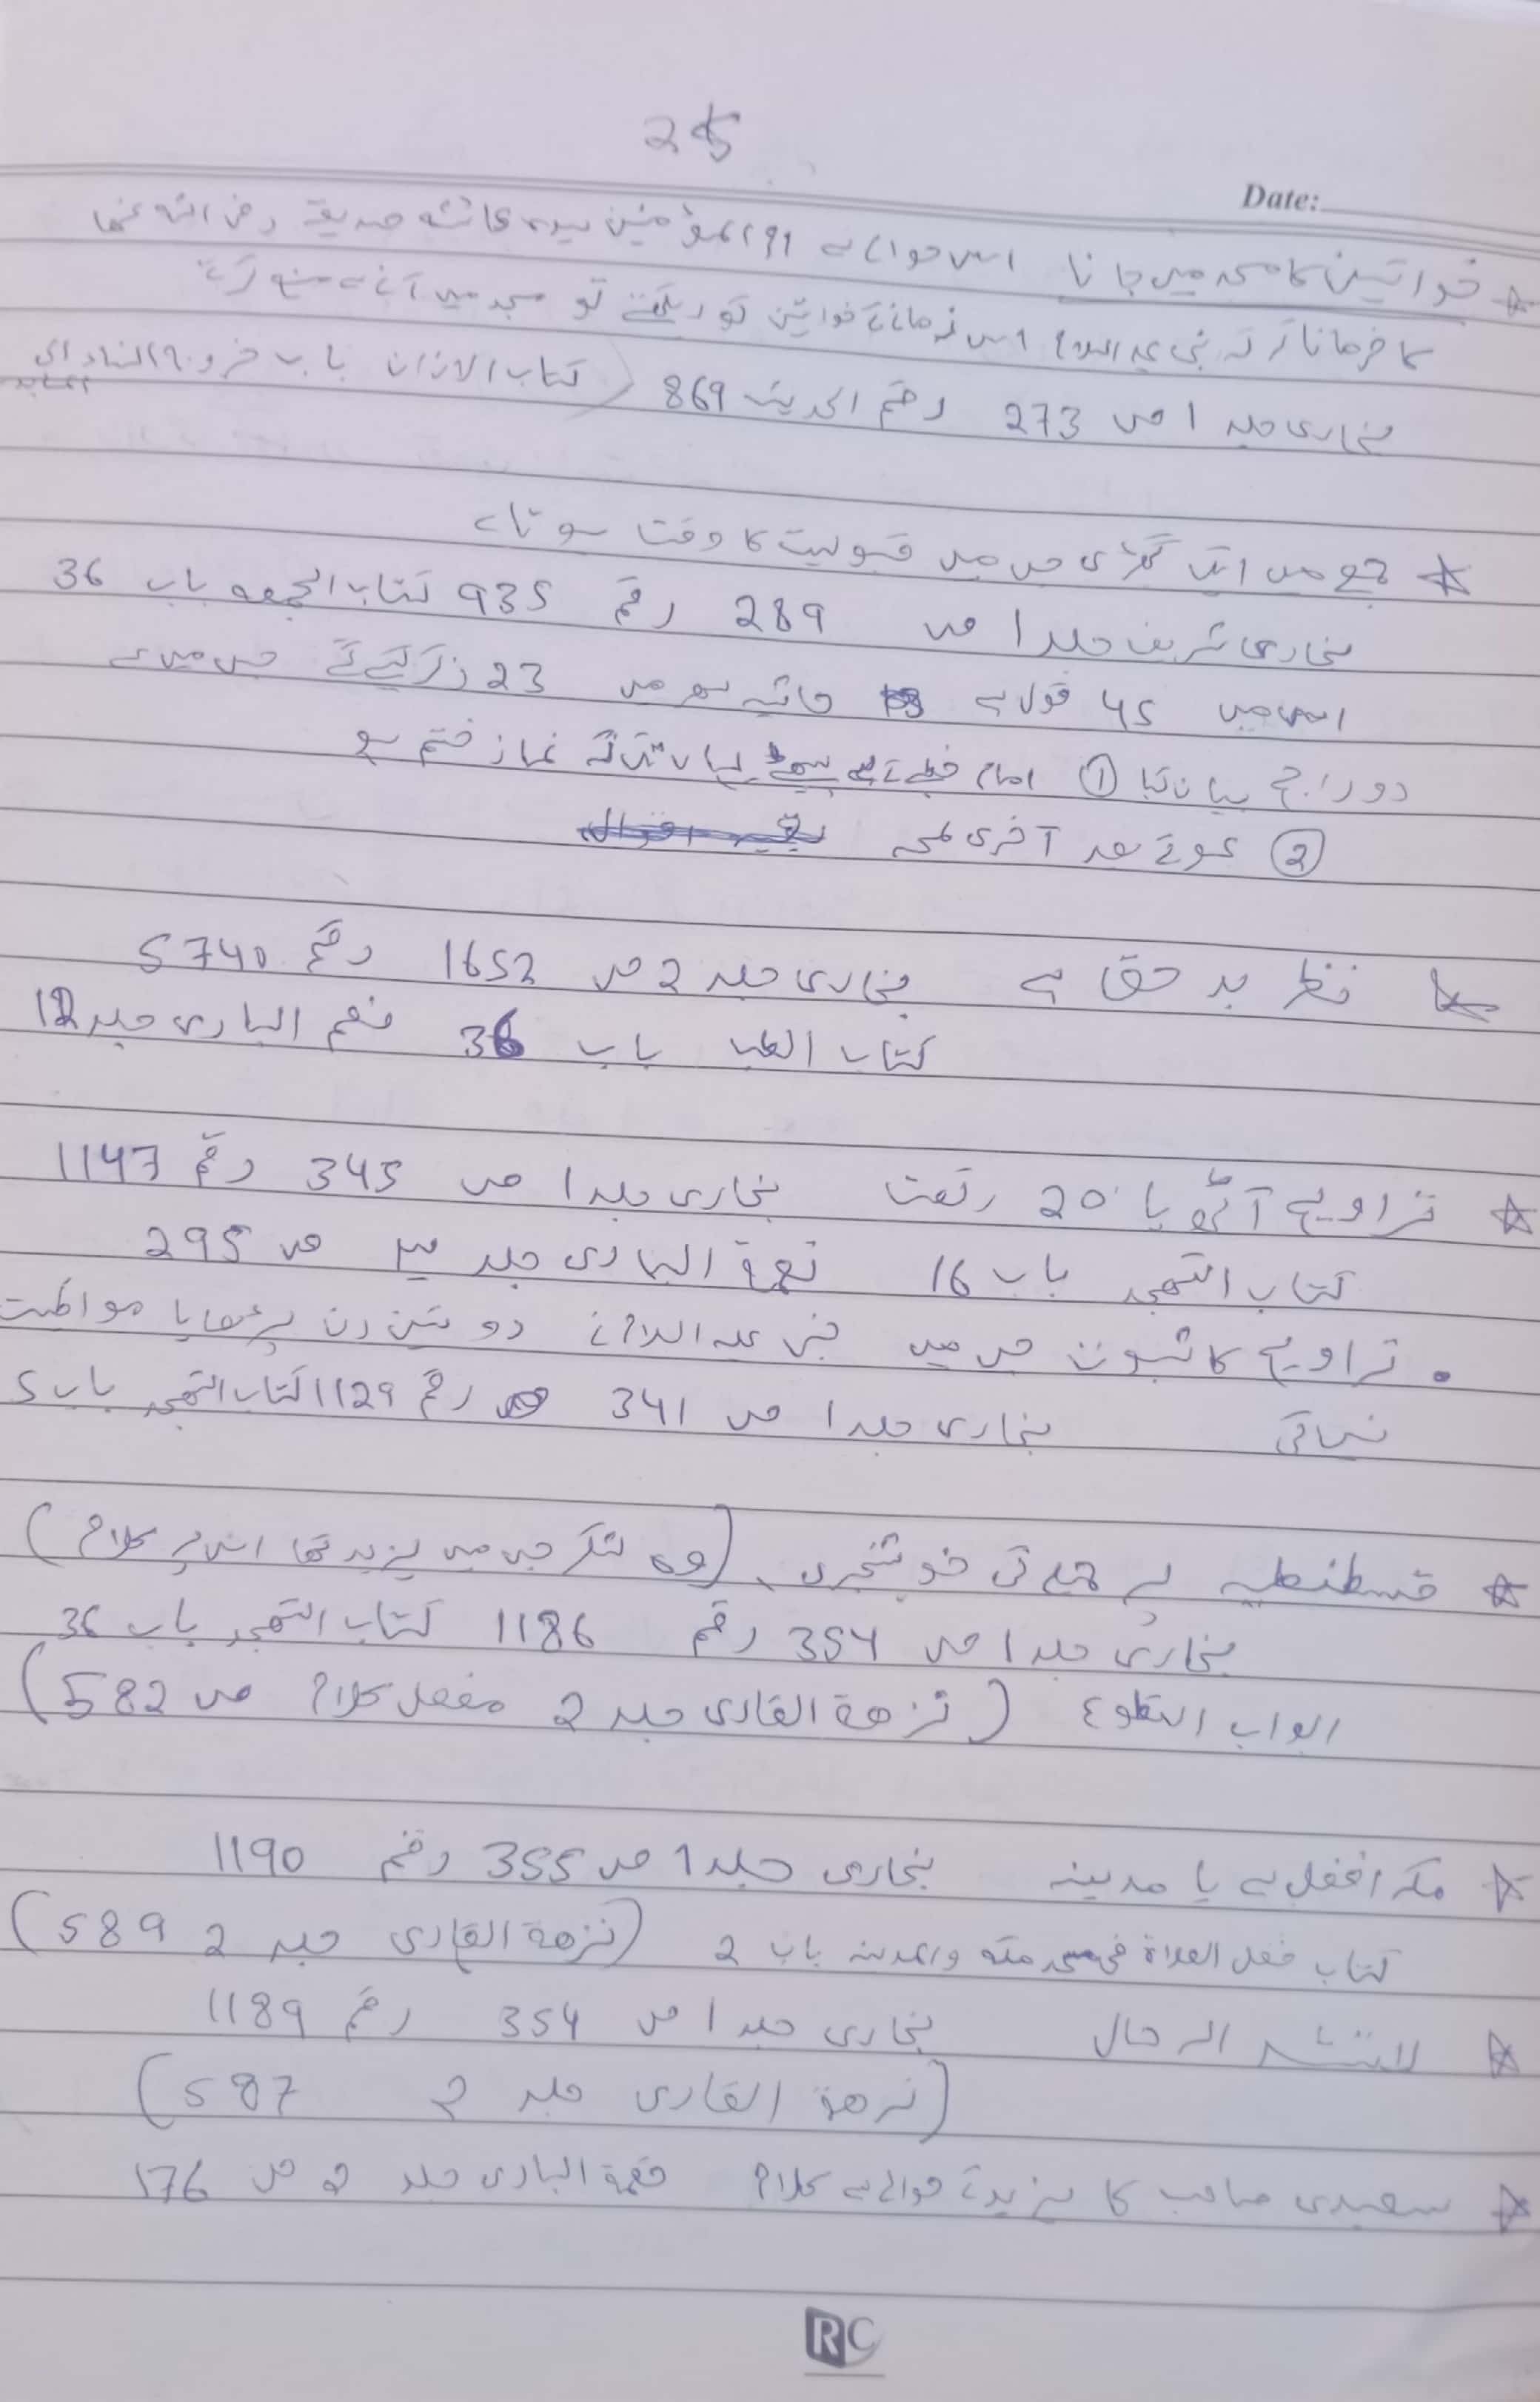 25
Date:
☆ خواتین کا مسجد میں جانا اس حوالے سے ام المؤمنین سیدہ عائشہ صدیقہ رضی اللہ عنھا
کا فرمانا کہ نبی علیہ السلام اس زمانے کے خواتین کو دیکھتے تو مسجد میں آنے سے منع کرتے
بخاری جلد 1 ص 273 رقم الحدیث 869 (کتاب الاذان باب خروج النساء الی المساجد
☆ جمعے میں ایک گھڑی جس میں قبولیت کا وقت ہوتا ہے
بخاری شریف جلد 1 ص 289 رقم 935 کتاب الجمعہ باب 36
اس میں 45 قول ہے حاشیہ میں 23 ذکر کیے گئے جس میں سے
دو راجح بیان کیا ① امام خطبے کے لیے بیٹھے یہاں تک کہ نماز ختم ہو
② آخری لمحہ
☆ نظر بد حق ہے بخاری جلد 2 ص 1652 رقم 5740
کتاب الطب باب 36 نعم الباری جلد 12
☆ تراویح آٹھ یا 20 رکعت بخاری جلد 1 ص 345 رقم 1147
کتاب التھجد باب 16 نعمۃ الباری جلد ۳ ص 295
• تراویح کا ثبوت جس میں نبی علیہ السلام نے دو تین دن پڑھایا مواظبت
نہیں کی بخاری جلد 1 ص 341 رقم 1129 کتاب التھجد باب 5
☆ قسطنطیہ پر حملے کی خوشخبری (وہ لشکر جس میں یزید تھا اس پر کلام)
بخاری جلد 1 ص 354 رقم 1186 کتاب التھجد باب 36
ابواب التطوع (نزھۃ القاری جلد 2 مفصل کلام ص 582)
☆ مکہ افضل ہے یا مدینہ بخاری جلد 1 ص 355 رقم 1190
کتاب فضل الصلاۃ فی مسجد مکہ والمدینہ باب 2 (نزھۃ القاری جلد 2 589)
☆ لا تشد الرحال بخاری جلد 1 ص 354 رقم 1189
(نزھۃ القاری جلد 2 587)
☆ سعیدی صاحب کا یزید کے حوالے سے کلام نعمۃ الباری جلد 2 ص 176
RC